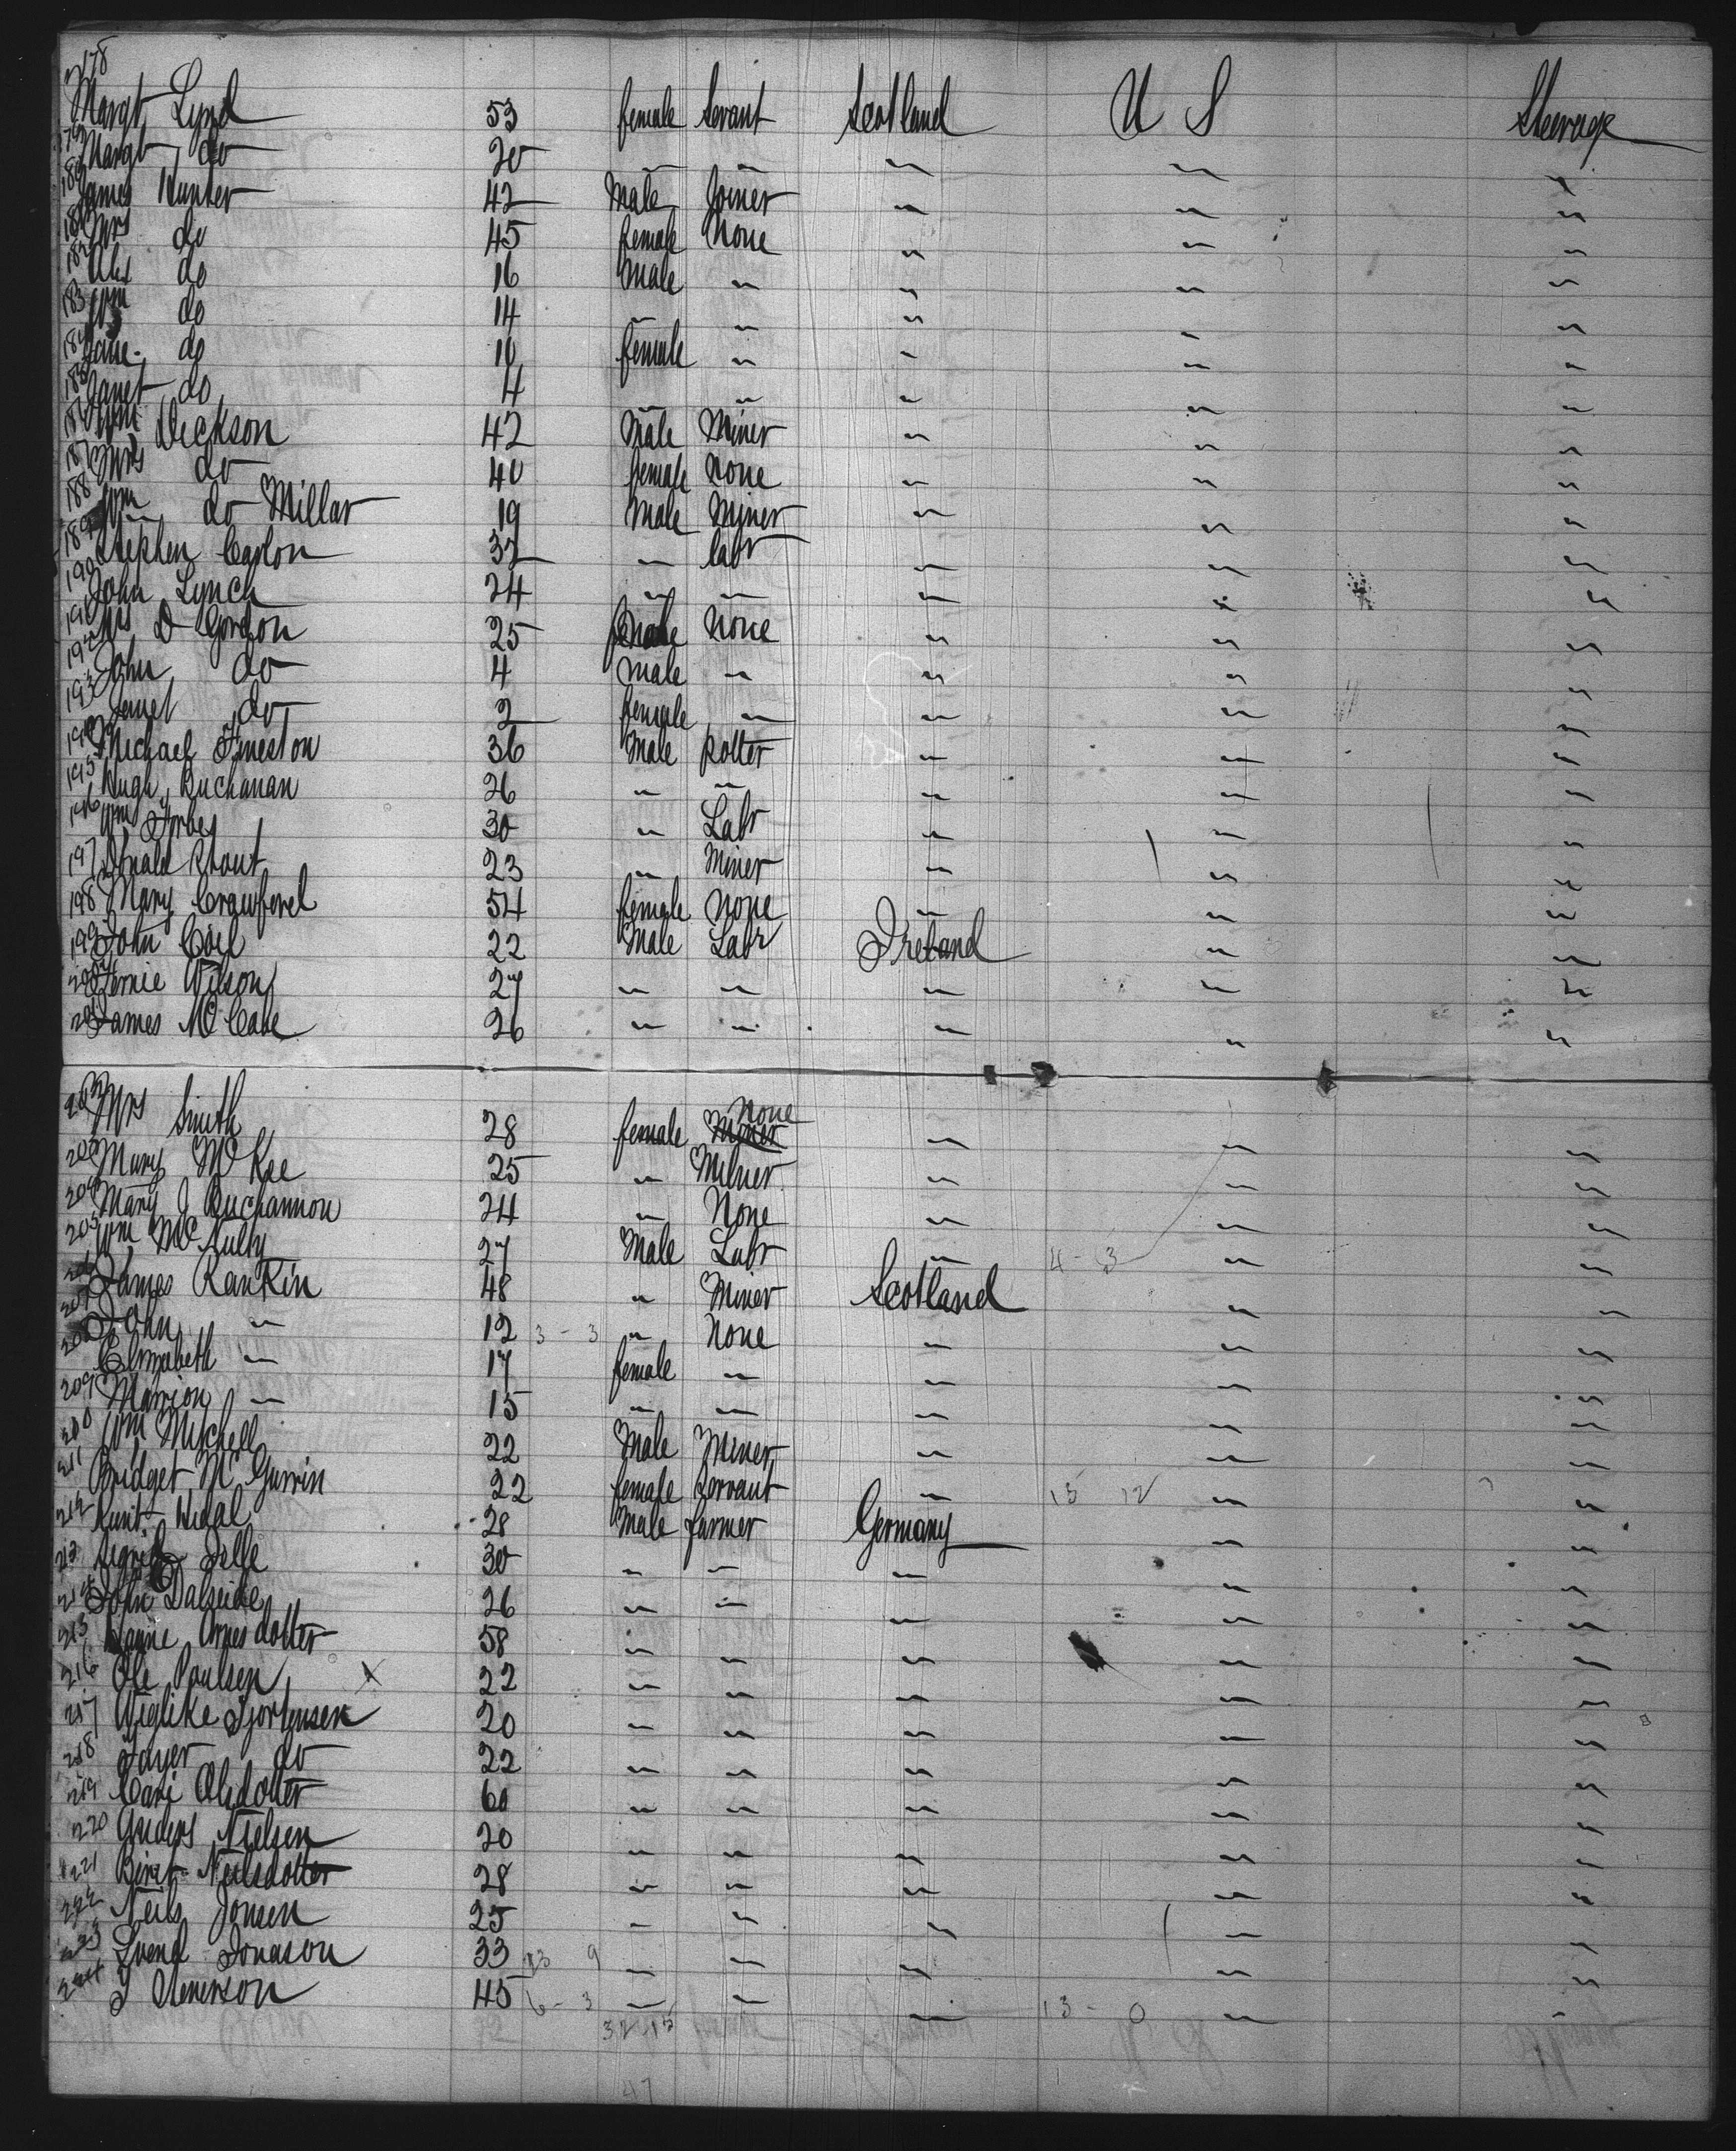 178 Margt Lynd 53 female Servant Scotland U S Steerage
179 Margt do 20 " " " " "
180 James Hunter 42 Male Joiner " " "
181 Mrs do 45 female None " " "
182 Alex do 16 Male " " " "
183 Wm do 14 " " " " "
184 Jane do 10 female " " " "
185 Janet do 4 " " " " "
186 Wm Dickson 42 Male Miner " " "
187 Mrs do 40 female None " " "
188 Wm do Millar 19 Male Miner " " "
189 Stephen 32 " labr " " "
190 John Lynch 24 " " " " "
191 Mrs D Gordon 25 female None " " "
192 John do 4 Male " " " "
193 Janet do 2 female " " " "
194 Michael 36 Male Potter " " "
195 Hugh Buchanan 26 " " " " "
196 Wm Forbes 30 " Labr " " "
197 Donald 23 " Miner " " "
198 Mary Crawford 54 female None " " "
199 John 22 Male Labr Ireland " "
200 Wilson 27 " " " " "
201 James McCabe 26 " " " " "
202 Mrs Smith 28 female None " " "
203 Mary McKee 25 " Milner " " "
204 Mary J Buchannon 24 " None " " "
205 Wm McNulty 27 Male Labr " 4 - 3 " "
206 James Rankin 48 " Miner Scotland " "
207 John " 12 3 - 3 " None " " "
208 Elizabeth " 17 female " " " "
209 Marrion " 15 " " " " "
200 Wm Mitchell 22 Male Miner " " "
211 Bridget McGurrin 22 female Servant " 15 12 " "
212 28 Male farmer Germany " "
213 30 " " " " "
214 John Dalseide 26 " " " " "
215 58 " " " " "
216 Ole Poulsen X 22 " " " " "
217 20 " " " " "
218 do 22 " " " " "
219 Cari Olsdotter 60 " " " " "
220 Nielsen 20 " " " " "
221 Biret Neilsdotter 28 " " " " "
222 Neils Jonsen 25 " " " " "
223 Svend Jonason 33 23 9 " " " " "
224 45 6 - 3 " " " 13 - 0 " "
32 15
47